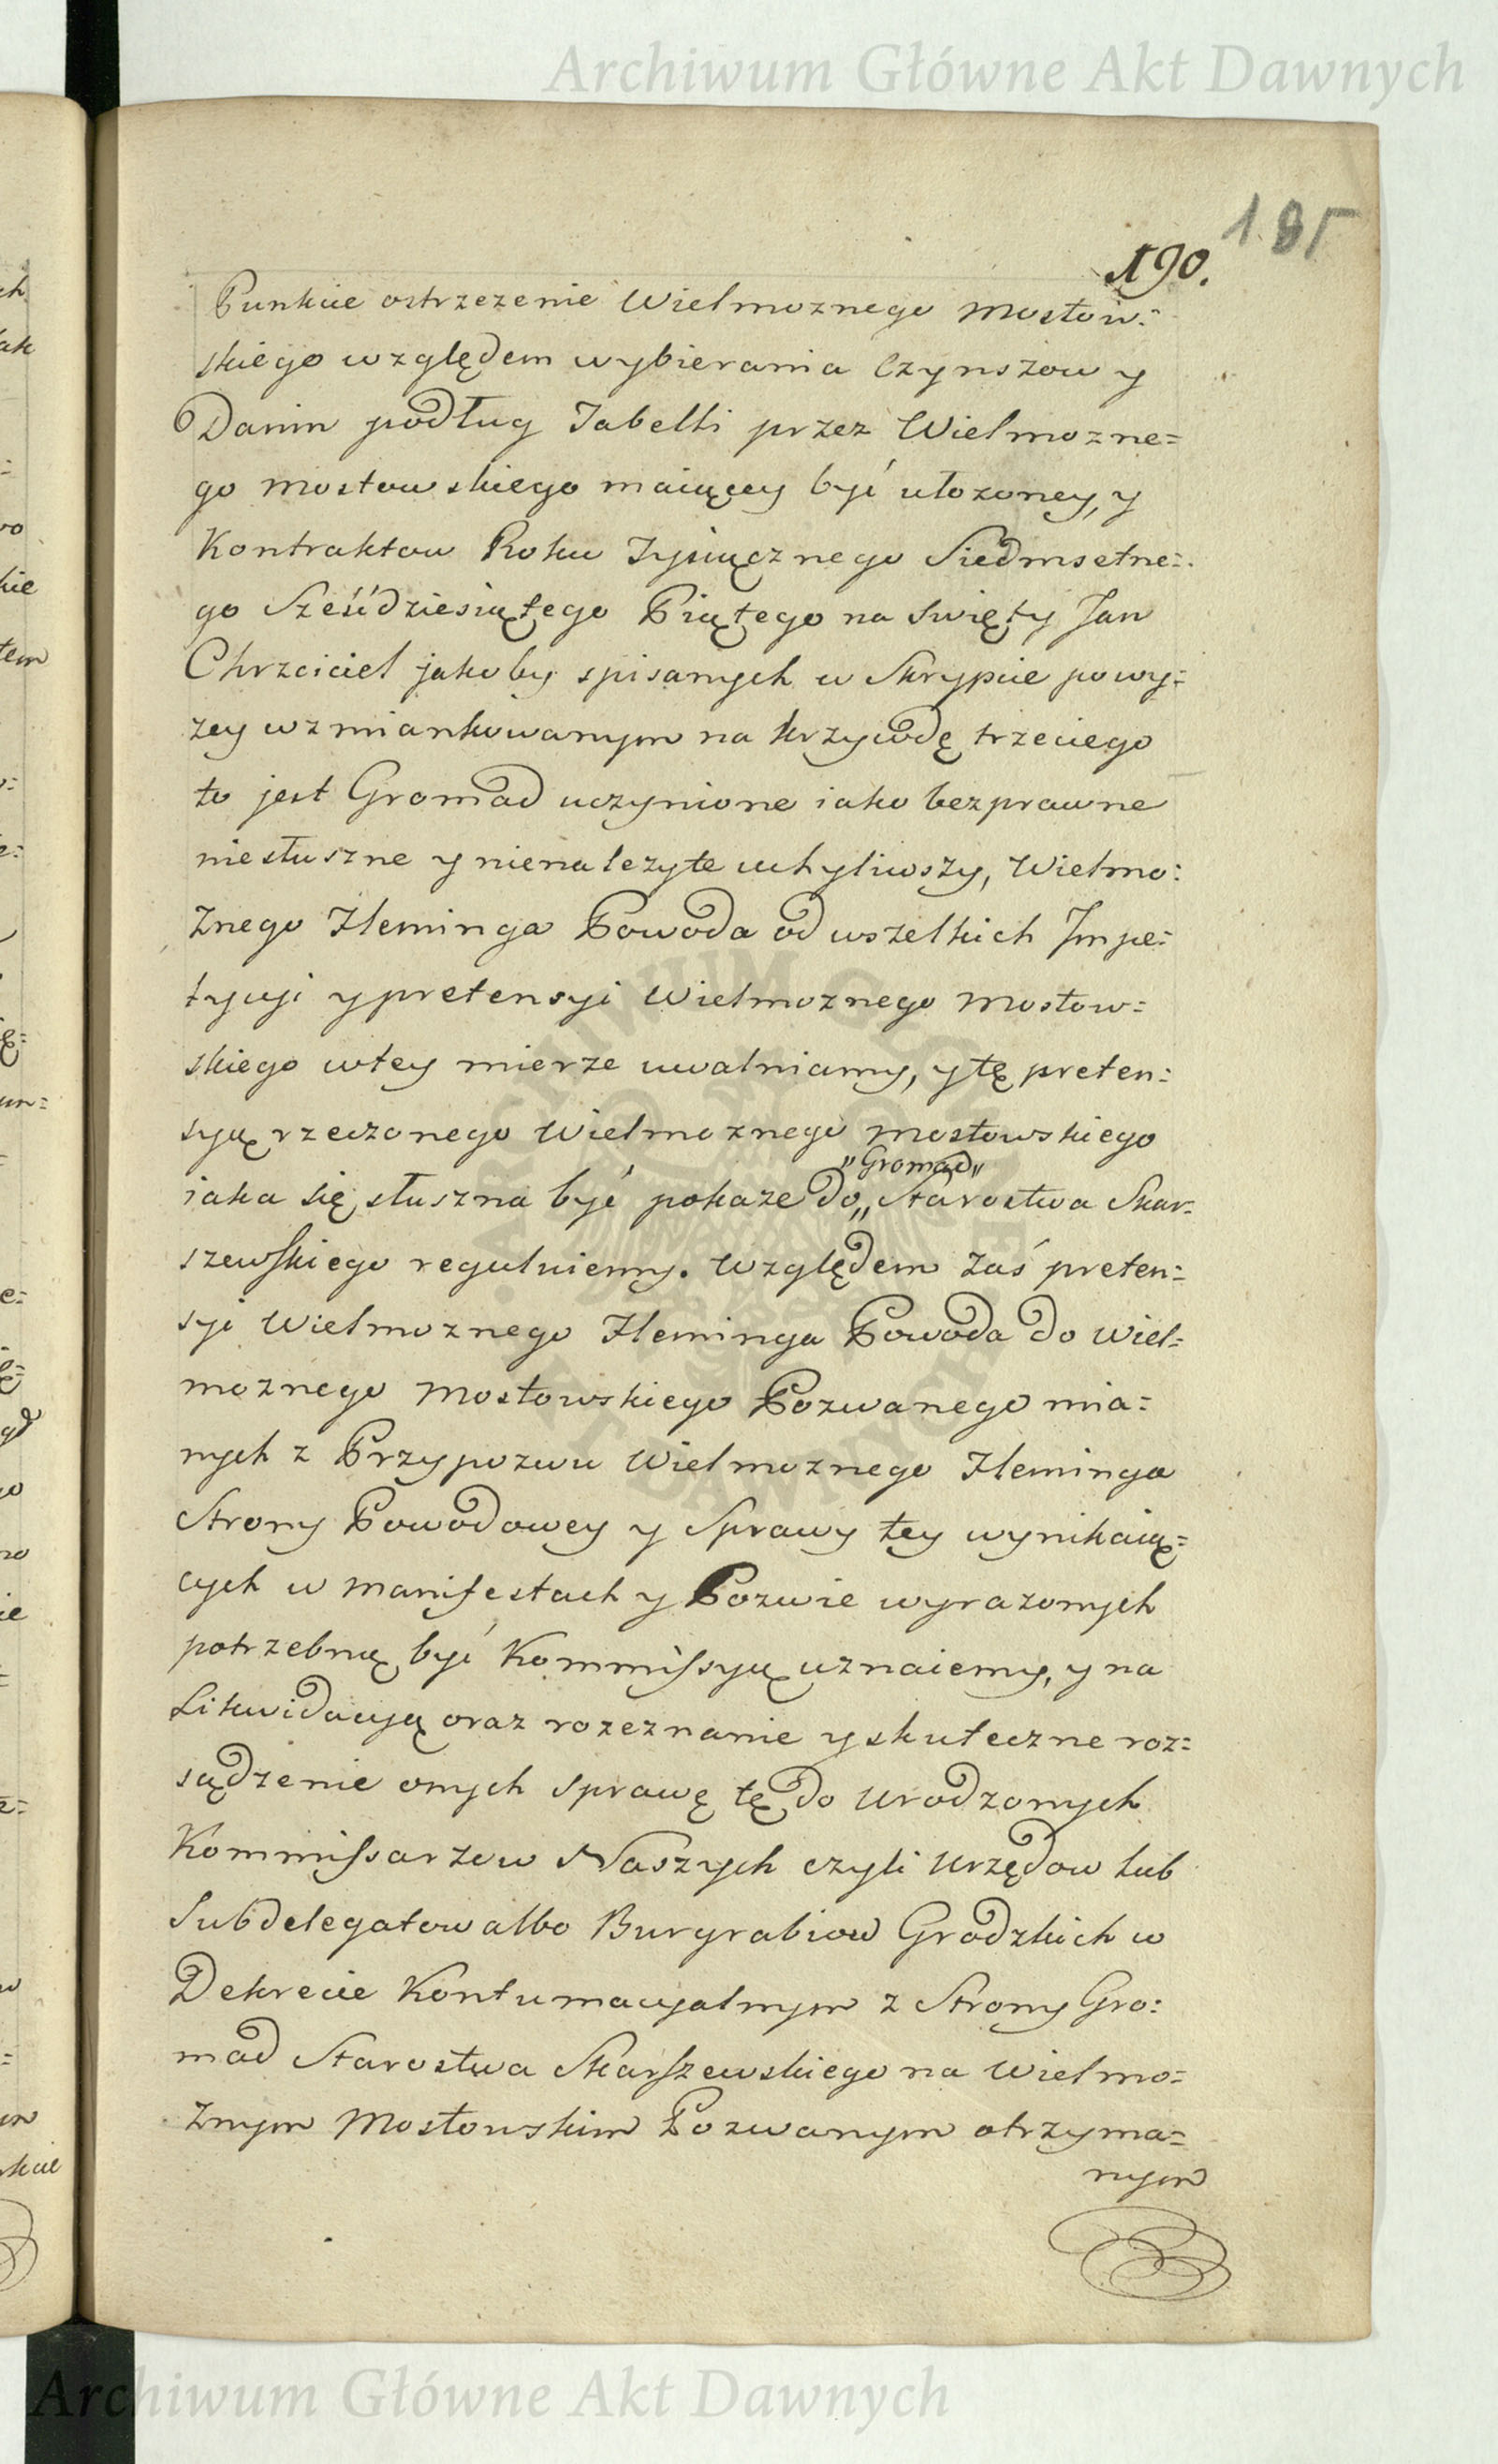 Archiwum Główne Akt Dawnych
185
190.
Punkcie ostrzezenie Wielmoznego Mostow:
skiego względem wybierania Czynszow y
Danin podług Tabelli przez Wielmozne=
go Mostowskiego maiącey być ułozoney, y
Kontraktow Roku Tysiącznego Siedmsetne=
go Sześćdziesiątego Piątego na Swięty Jan
Chrzciciel jakoby spisanych w Skrypcie powy=
zey wzmiankowanym na krzywdę trzeciego
to jest Gromad uczynione iako bezprawne
niesłuszne y nienalezyte uchyliwszy, Wielmo:
znego Fleminga Powoda od wszelkich Impe:
tycyi y pretensyi Wielmoznego Mostow=
skiego wtey mierze uwalniamy, y tę preten:
syą rzeczonego Wielmoznego Mostowskiego
„Gromad„
iaka się słuszna być pokaze do„ Starostwa Skar=
szewskiego regulujemy. Względem zaś preten=
syi Wielmoznego Fleminga Powoda do Wiel=
moznego Mostowskiego Pozwanego mia=
nych z Przypozwu Wielmoznego Fleminga
Strony Powodowey y Sprawy tey wynikaią=
cych w Manifestach y Pozwie wyrazonych
potrzebną być Kommissyą uznaiemy, y na
Likwidacyą oraz rozeznanie y skuteczne roz=
sądzenie onych Sprawę tę do Urodzonych
Kommissarzow Naszych czyli Urzędow lub
Subdelegatow albo Burgrabiow Grodzkich w
Dekrecie Kontumacyalnym z Strony Gro:
mad Starostwa Skarszewskiego na Wielmo=
znym Mostowskim Pozwanym otrzyma=
nym
Archiwum Główne Akt Dawnych